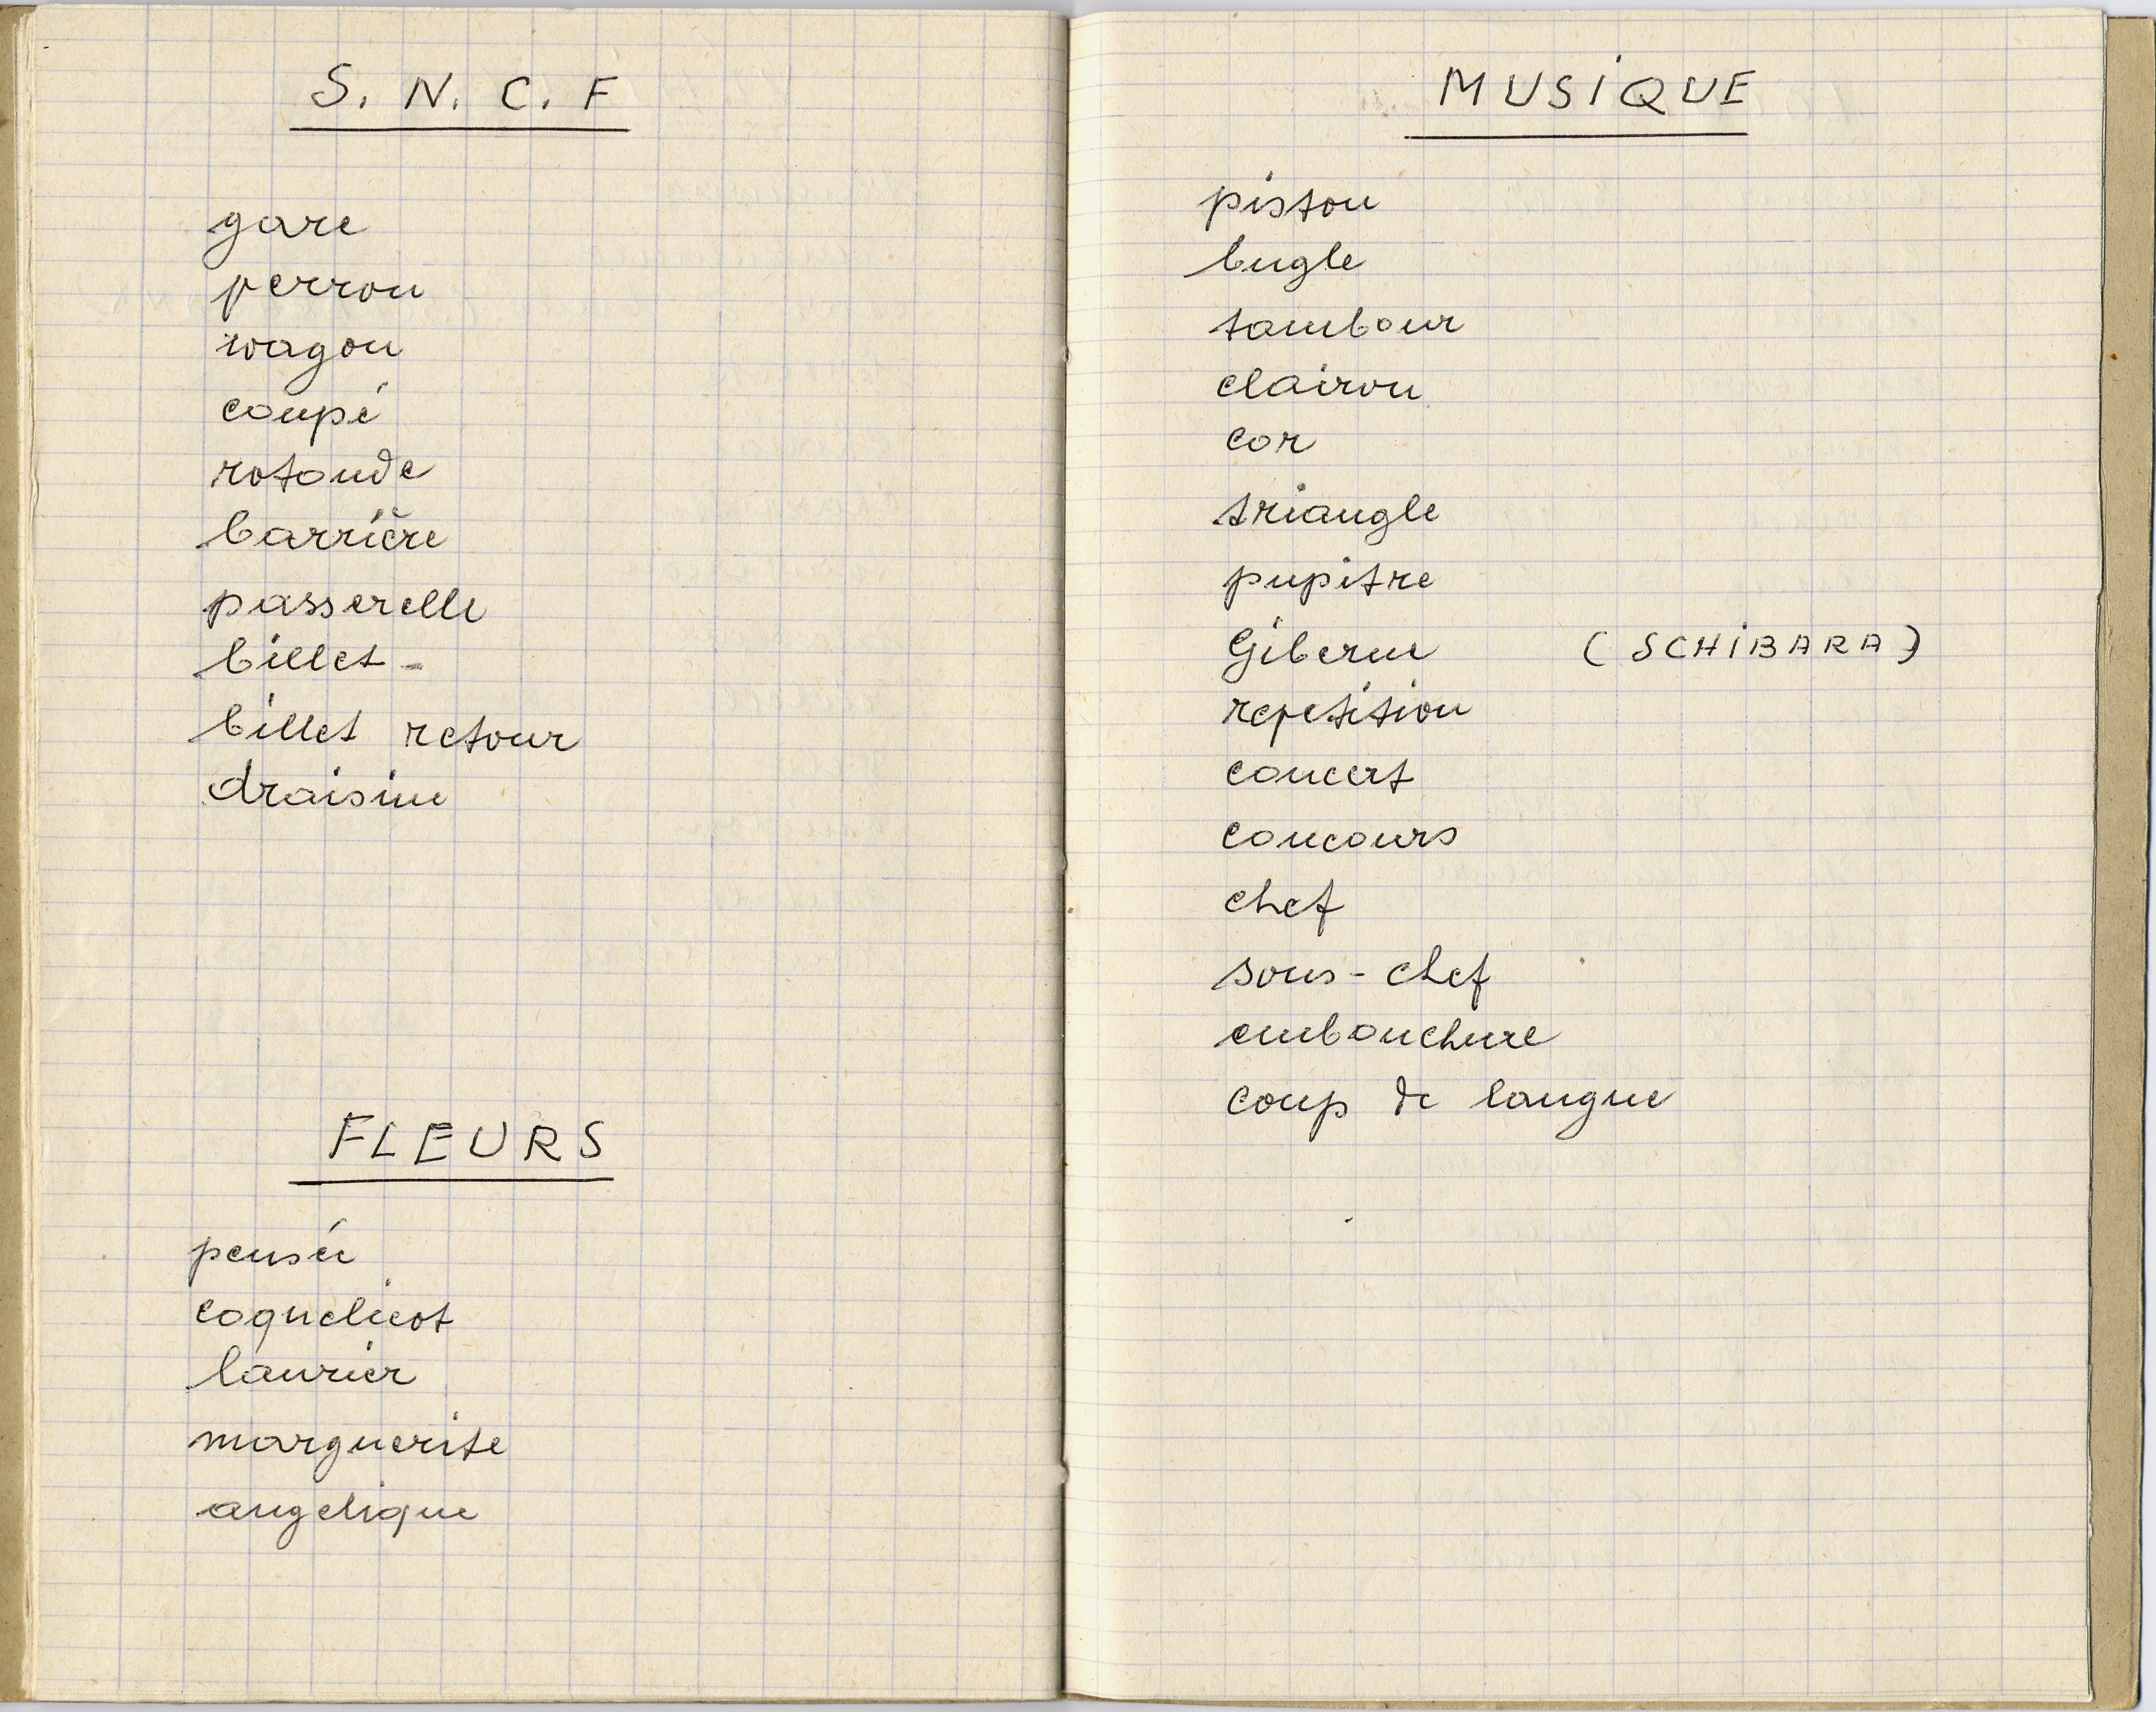 S. N. C. F
gare
perron
wagon
coupé
rotonde
barrière
passerelle
billet
billet retour
draisine
FLEURS
pensée
coquelicot
laurier
marguerite
angelique
MUSIQUE
piston
bugle
tambour
clairon
cor
triangle
pupitre
Giberne (SCHIBARA)
repetition
concert
concours
chef
sous-chef
embouchure
coup de langue